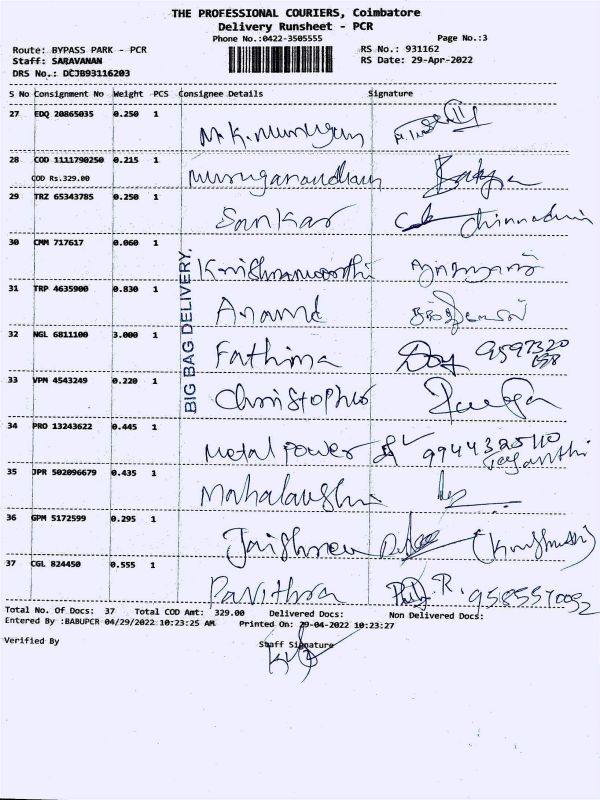 THE PROFESSIONAL COURIERS, Coimbatore
Delivery Runsheet - PCR
Phone No.:0422-3505555 Page No.:3
Route: BYPASS PARK - PCR RS No.: 931162
Staff: SARAVANAN RS Date: 29-Apr-2022
DRS No.: DCJB93116203
S No Consignment No Weight PCS Consignee Details Signature
27 EDQ 20865035 0.250 1 Mr.K.Murugan
28 COD 1111790250 0.215 1 Muruganandham
COD Rs.329.00
29 TRZ 65343785 0.250 1 Sankar Chinnadurai
30 CMM 717617 0.060 1 Krishnamoorthi
31 TRP 4635900 0.830 1 Anand
32 NGL 6811100 3.000 1 Fathima 9597320
198
33 VPM 4543249 0.220 1 Christopher
34 PRO 13243622 0.445 1 Metal Power 9944325110
Jeyanthi
35 JPR 502096679 0.435 1 Mahalakshmi
36 GPM 5172599 0.295 1 Jaishree
37 CGL 824450 0.555 1 Pavithra
BIG BAG DELIVERY.
Total No. Of Docs: 37 Total COD Amt: 329.00 Delivered Docs: Non Delivered Docs:
Entered By :BABUPCR 04/29/2022 10:23:25 AM Printed On: 29-04-2022 10:23:27
Verified By Staff Signature